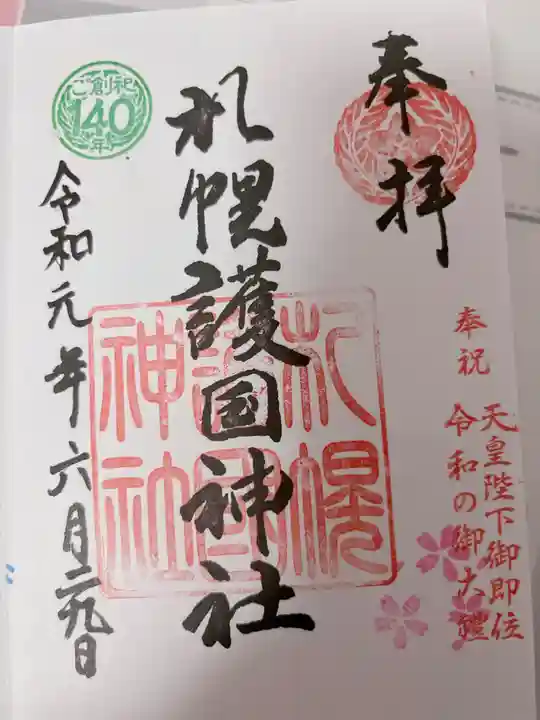 奉拝
奉祝
天皇陛下御即位
令和の御大禮
札幌護国神社
札幌
護國
神社
ご創祀
140
年
令和元年六月二九日